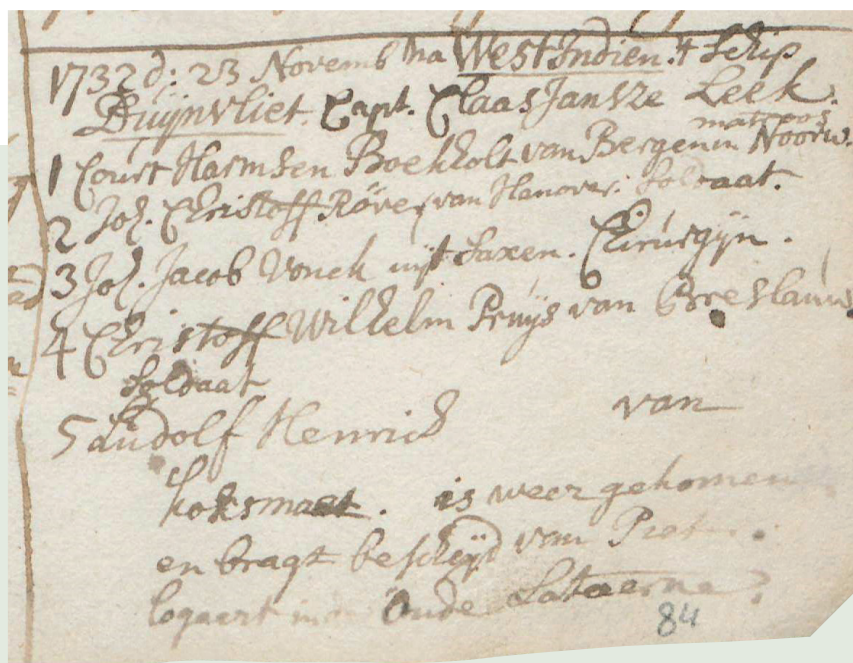 1732 d: 23 Novemb na West Indien. 't Schip
Duijnvliet. Capt. Claas Jansze Leek.
matroos
1 Court Harmsen Boekholt van Bergen in Noorw.
2 Joh. Christoff Röver van Hanover. Soldaat.
3 Joh. Jacob Vonck uijt Saxen. Chirurgijn.
4 Christoff Wilhelm Pruijs van Breslauw
Soldaat
5 Ludolf Henrich van
koksmaet. is weer gekomen
en bragt bescheijd van
logeert Oude
84